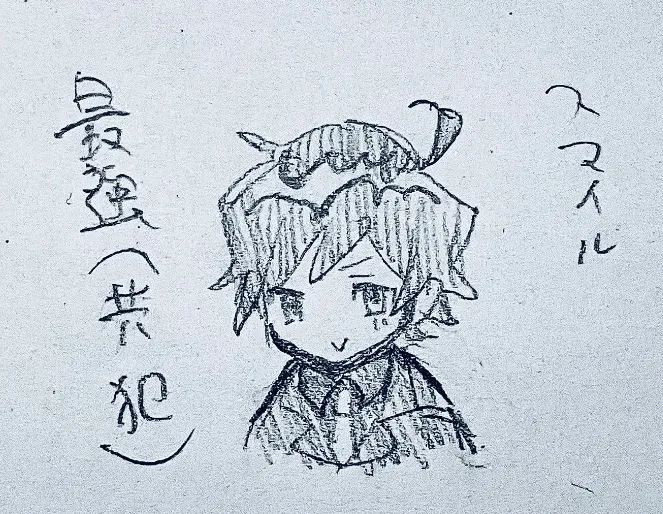 スマイル
最強(共犯)